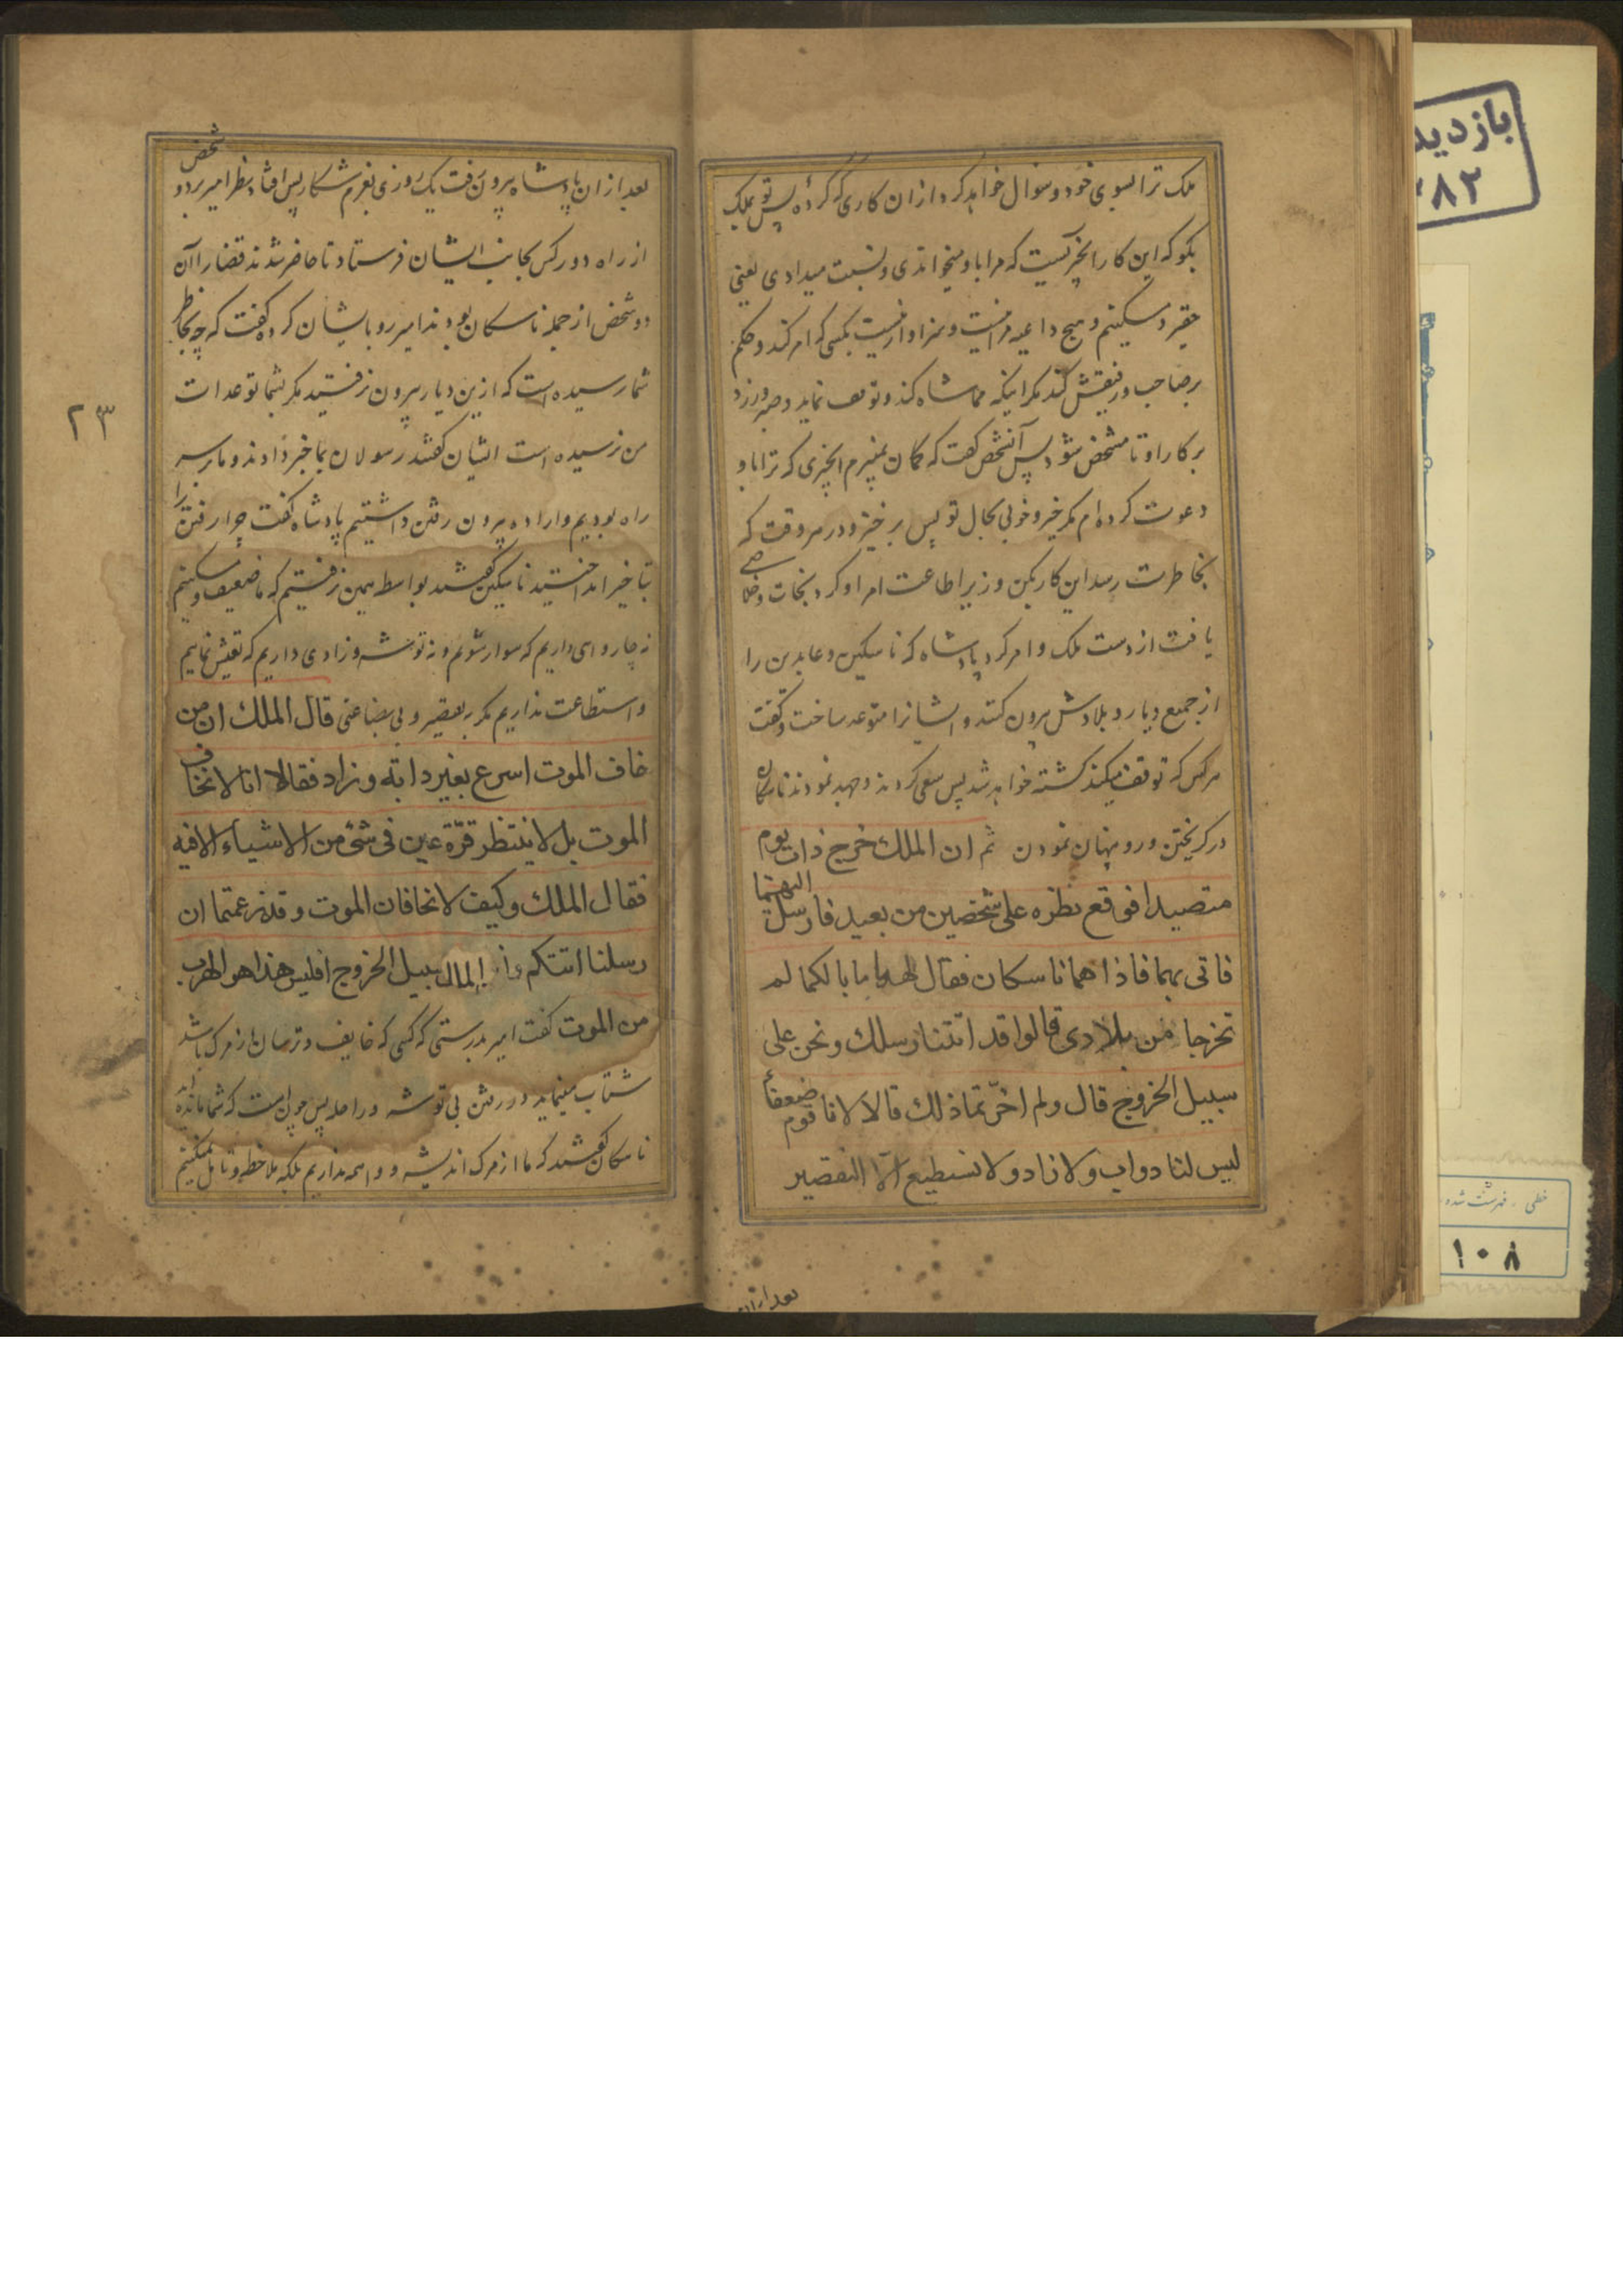 ملک ترا بسوی خود و سوال خواهد کرد از ان کاری که کردهٔ پس تو بملک
بکو که این کار انچیزیست که مرا باو میخواندی و نسبت میدادی یعنی
حقیر و مسکینم و هیچ داعیه مرا نیست و سزاوار نیست بکسی که امر کند و حکم
بر صاحب و رفیقش کند مکر اینکه مماشاه کند و توقف نماید و صبر ورزد
بر کار او تا مشخص شود پس آنشخص کفت که کمان نمیبرم انچیزی که ترا باو
دعوت کرده ام مکر خیر و خوبی بحال تو پس برخیز و در هر وقت که
بخاطرت رسد این کار بکن وزیر اطاعت امر او کرد نجات و خلاصی
یافت از دست ملک و امر کرد پادشاه که ناسکین و عابدین را
از جمیع دیار و بلادش بیرون کنند و ایشانرا متوعد ساخت و کفت
هر کس که توقف میکند کشته خواهد شد پس سعی کردند و جهد نمودند ناسکان
در کریختن و رو پنهان نمودن ثم ان الملک خرج ذات یوم
متصیدا فوقع نظره علی شخصین من بعید فارسل الیهما
فاتی بهما فاذا هما ناسکان فقال لهما ما بالکما لم
تخرجا من بلادی قالوا قد اتتنا رسلک ونحن علی
سبیل الخروج قال ولم اخّرتما ذلک قالا لانا قوم ضعفاء
لیس لنا دواب ولا زاد ولا نستطیع الّا التقصیر
بعد ازان
بعد ازان پادشاه بیرون رفت یک روزی بعزم شکار پس افتاد نظر امیر بر دو شخص
از راه دور کس بجانب ایشان فرستاد تا حاضر شدند قضا را آن
دو شخص از جمله ناسکان بودند امیر رو بایشان کرده کفت که چه بخاطر
شما رسیده است که ازین دیار بیرون نرفتید مکر بشما توعدات
من نرسیده است ایشان کفتند رسولان بما خبر دادند و ما بر سر
راه بودیم و اراده بیرون رفتن داشتیم پادشاه کفت چرا رفتن را
بتاخیر انداختید ناسکین کفتند بواسطه همین نرفتیم که ما ضعیف و مسکینیم
نه چاروای داریم که سوار شویم و نه توشه و زادی داریم که تعیش نماییم
و استطاعت نداریم مکر بتقصیر و بی بضاعتی قال الملک ان من
خاف الموت اسرع بغیر دابّه و زاد فقالا انا لا نخاف
الموت بل لا ینتظر قرّة عین فی شئ من الاشیاء الا فیه
فقال الملک وکیف لا تخافان الموت وقد زعمتما ان
رسلنا اتتکم سبیل الخروج افلیس هذا هو الهرب
من الموت کفت امیر بدرستی که کسی که خایف و ترسان از مرک باشد
شتاب مینماید در رفتن بی توشه و راحله پس چون است که شما مانده اید
ناسکان کفتند که ما از مرک اندیشه و واسمه نداریم بلکه ملاحظه و تامل نمیکنیم
۲۳
بازدید
۳۸۲
خطی . فهرست شده
۱۰۸